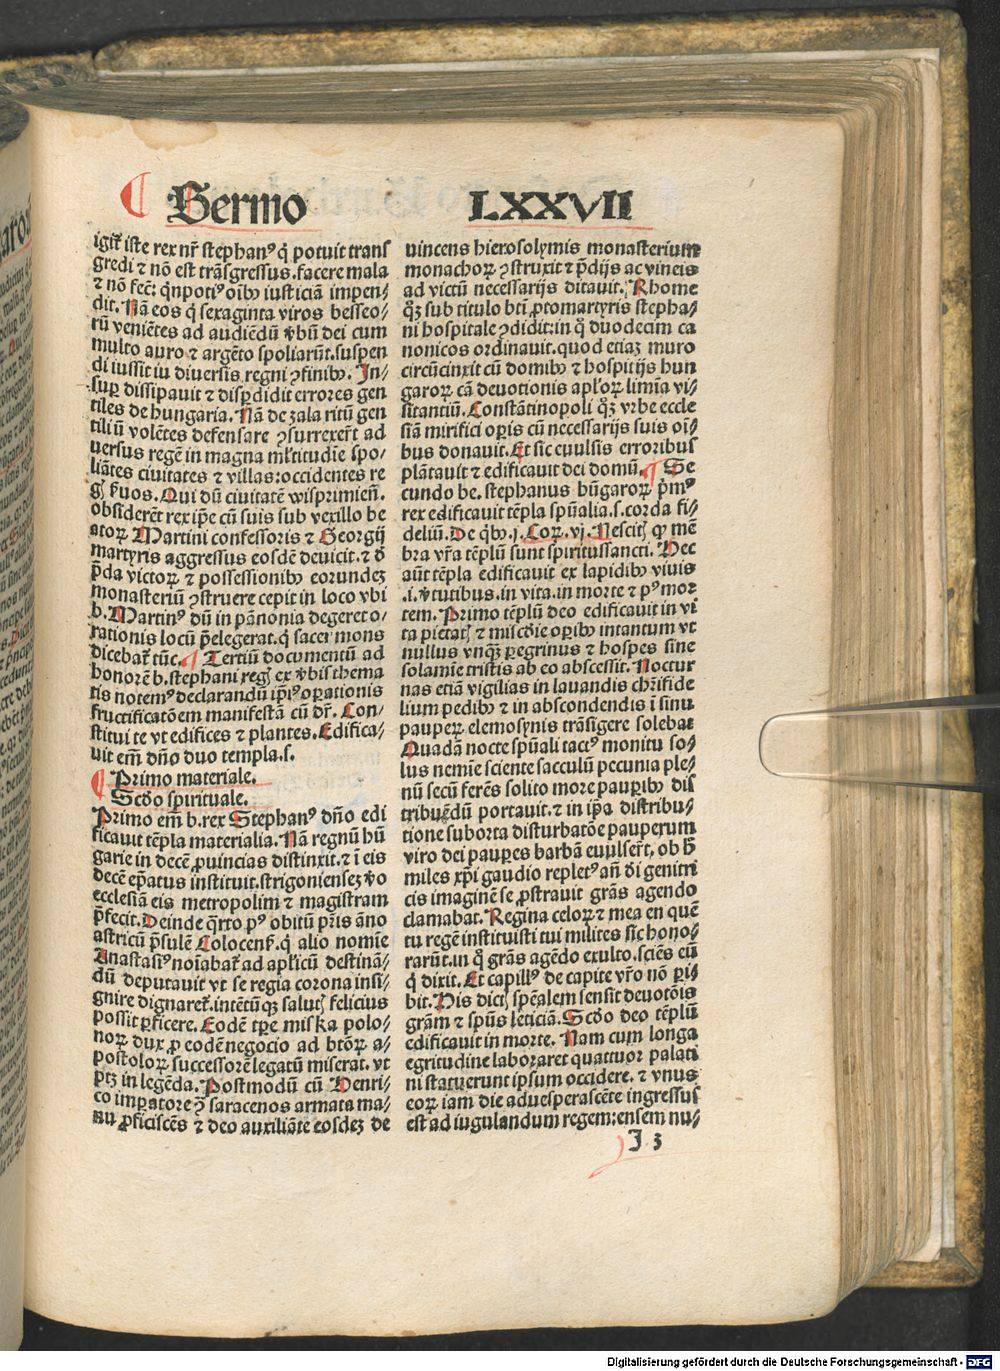 ¶ Sermo LXXVII
igit᷑ iste rex nr̄ stephanꝰ q̇ potuit transꝰ
gredi ⁊ nō est trāsgressus. facere mala
⁊ nō fec̄: qnpotiꝰ oib᷒ iusticiā impen⸗
dit. Nā eos q̇ sexaginta viros besseo⸗
rū veniētes ad audiēdū v̄bū dei cum
multo auro ⁊ argēto spoliarūt. suspen
di iussit iu diuersis regni ꝯfinib᷒. In⸗
suꝑ dissipauit ⁊ disꝑdidit errores gen
tiles de hungaria. Nā de zala ritū gen
tiliū volētes defensare ꝯsurrexer̄t ad
uersus regē in magna ml̄titudīe spo⸗
liātes ciuitates ⁊ villas: occidentes re
gꝭ ẜuos. Qui dū ciuitatē wisprimiēn.
obsiderēt rex ip̄e cū suis sub vexillo be
atoꝝ Martini confessoris ⁊ Georgij
martyris aggressus eosdē deuicit. ⁊ d̄
p̄da victoꝝ ⁊ possessionib᷒ eorundez
monasteriū ꝯstruere cepit in loco vbi
b. Martinꝰ dū in pānonia degeret o⸗
rationis locū p̄elegerat. q̇ sacer mons
dicebat᷑ tūc. ¶ Tertiū documentū ad
honorē b. stephani regꝭ ex v̄bis thema
tis notemꝰ declarandū ip̄iꝰ oꝑationis
fructificatōem manifestā cū dr̄. Con⸗
stitui te vt edifices ⁊ plantes. Edifica⸗
uit em̄ dn̄o duo templa. s.
¶ Primo materiale.
Scd̄o spirituale.
Primo em̄ b. rex Stephanꝰ dn̄o edi
ficauit tēpla materialia. Nā regnū hū
garie in decē ꝓuincias distinxit. ⁊ ī eis
decē ep̄atus instituit. strigoniensez v̄o
ecclesiā eis metropolim ⁊ magistram
p̄fecit. Deinde q̄rto pꝰ obitū p̄ris āno
astricū p̄sulē Colocenẜ. q̇ alio nomīe
Anastasiꝰ noīabat᷑ ad apl̄icū destinā⸗
dū deputauit vt se regia corona insi⸗
gnire dignaret᷑. intētū qꝫ salutꝭ felicius
possit ꝑficere. Eodē tꝑe miska polo⸗
noꝝ dux ꝓ eodē negocio ad btōꝝ a⸗
postoloꝝ successorē legatū miserat. vt
ptꝫ in legēda. Postmodū cū Henri⸗
co imꝑatore ꝯ̄ saracenos armata ma⸗
nu ꝓficiscēs ⁊ deo auxiliāte eosdez de
uincens hierosolymis monasterium
monachoꝝ ꝯstruxit ⁊ p̄dijs ac vineis
ad victū necessarijs ditauit. Rhome
qꝫ sub titulo bt̄i ꝓtomartyris stepha⸗
ni hospitale ꝯdidit: in q̇ duodecim ca
nonicos ordinauit. quod etiaꝫ muro
circūcinxit cū domib᷒ ⁊ hospitijs hun
garoꝝ cā deuotionis apl̄oꝝ limīa vi⸗
sitantiū. Constātinopoli qꝫ vrbe eccle
siā mirifici oꝑis cū necessarijs suis oī⸗
bus donauit. Et sic euulsis erroribus
plātauit ⁊ edificauit dei domū. ¶ Se
cundo be. stephanus hūgaroꝝ p̄mꝰ
rex edificauit tēpla spūalia. s. corda fi⸗
deliū. De qb᷒ .j. Coꝝ. vj. Nescitꝭ qꝫ mē
bra vr̄a tēplū sunt spiritussancti. Hec
aūt tēpla edificauit ex lapidib᷒ viuis
.i. v̄tutibus. in vita. in morte ⁊ pꝰ mor
tem. Primo tēplū deo edificauit in vi
ta pietatꝭ ⁊ mis̄cdie oꝑib᷒ intantum vt
nullus vnqꝫ ꝑegrinus ⁊ hospes sine
solamīe tristis ab eo abscessit. Noctur
nas etiā vigilias in lauandis chr̄ifide
lium pedib᷒ ⁊ in abscondendis ī sinu
pauꝑeꝝ elemosynis trāsigere solebat
Quadā nocte spūali tactꝰ monitu so⸗
lus nemīe sciente sacculū pecunia ple⸗
nū secū ferēs solito more pauꝑib᷒ dis
tribuēdū portauit. ⁊ in ip̄a distribu⸗
tione suborta disturbatōe pauperum
viro dei pauꝑes barbā euulser̄t, ob h̄
miles xp̄i gaudio repletꝰ an̄ d̄i genitri
cis imaginē se ꝓstrauit gr̄as agendo
clamabat. Regina celoꝝ ⁊ mea en quē
tu regē instituisti tui milites sic hono⸗
rarūt. in q̇ gr̄as agēdo exulto. sciēs cū
q̇ dixit. Et capillꝰ de capite vr̄o nō ꝑi⸗
bit. His dictꝭ spēalem sensit deuotōis
gr̄am ⁊ spūs leticiā. Scd̄o deo tēplū
edificauit in morte. Nam cum longa
egritudine laboraret quattuor palati
ni statuerunt ipsum occidere. ⁊ vnus
eoꝝ iam die aduesperascēte ingressus
est ad iugulandum regem: ensem nu⸗
I 3
Digitalisierung gefördert durch die Deutsche Forschungsgemeinschaft - DFG